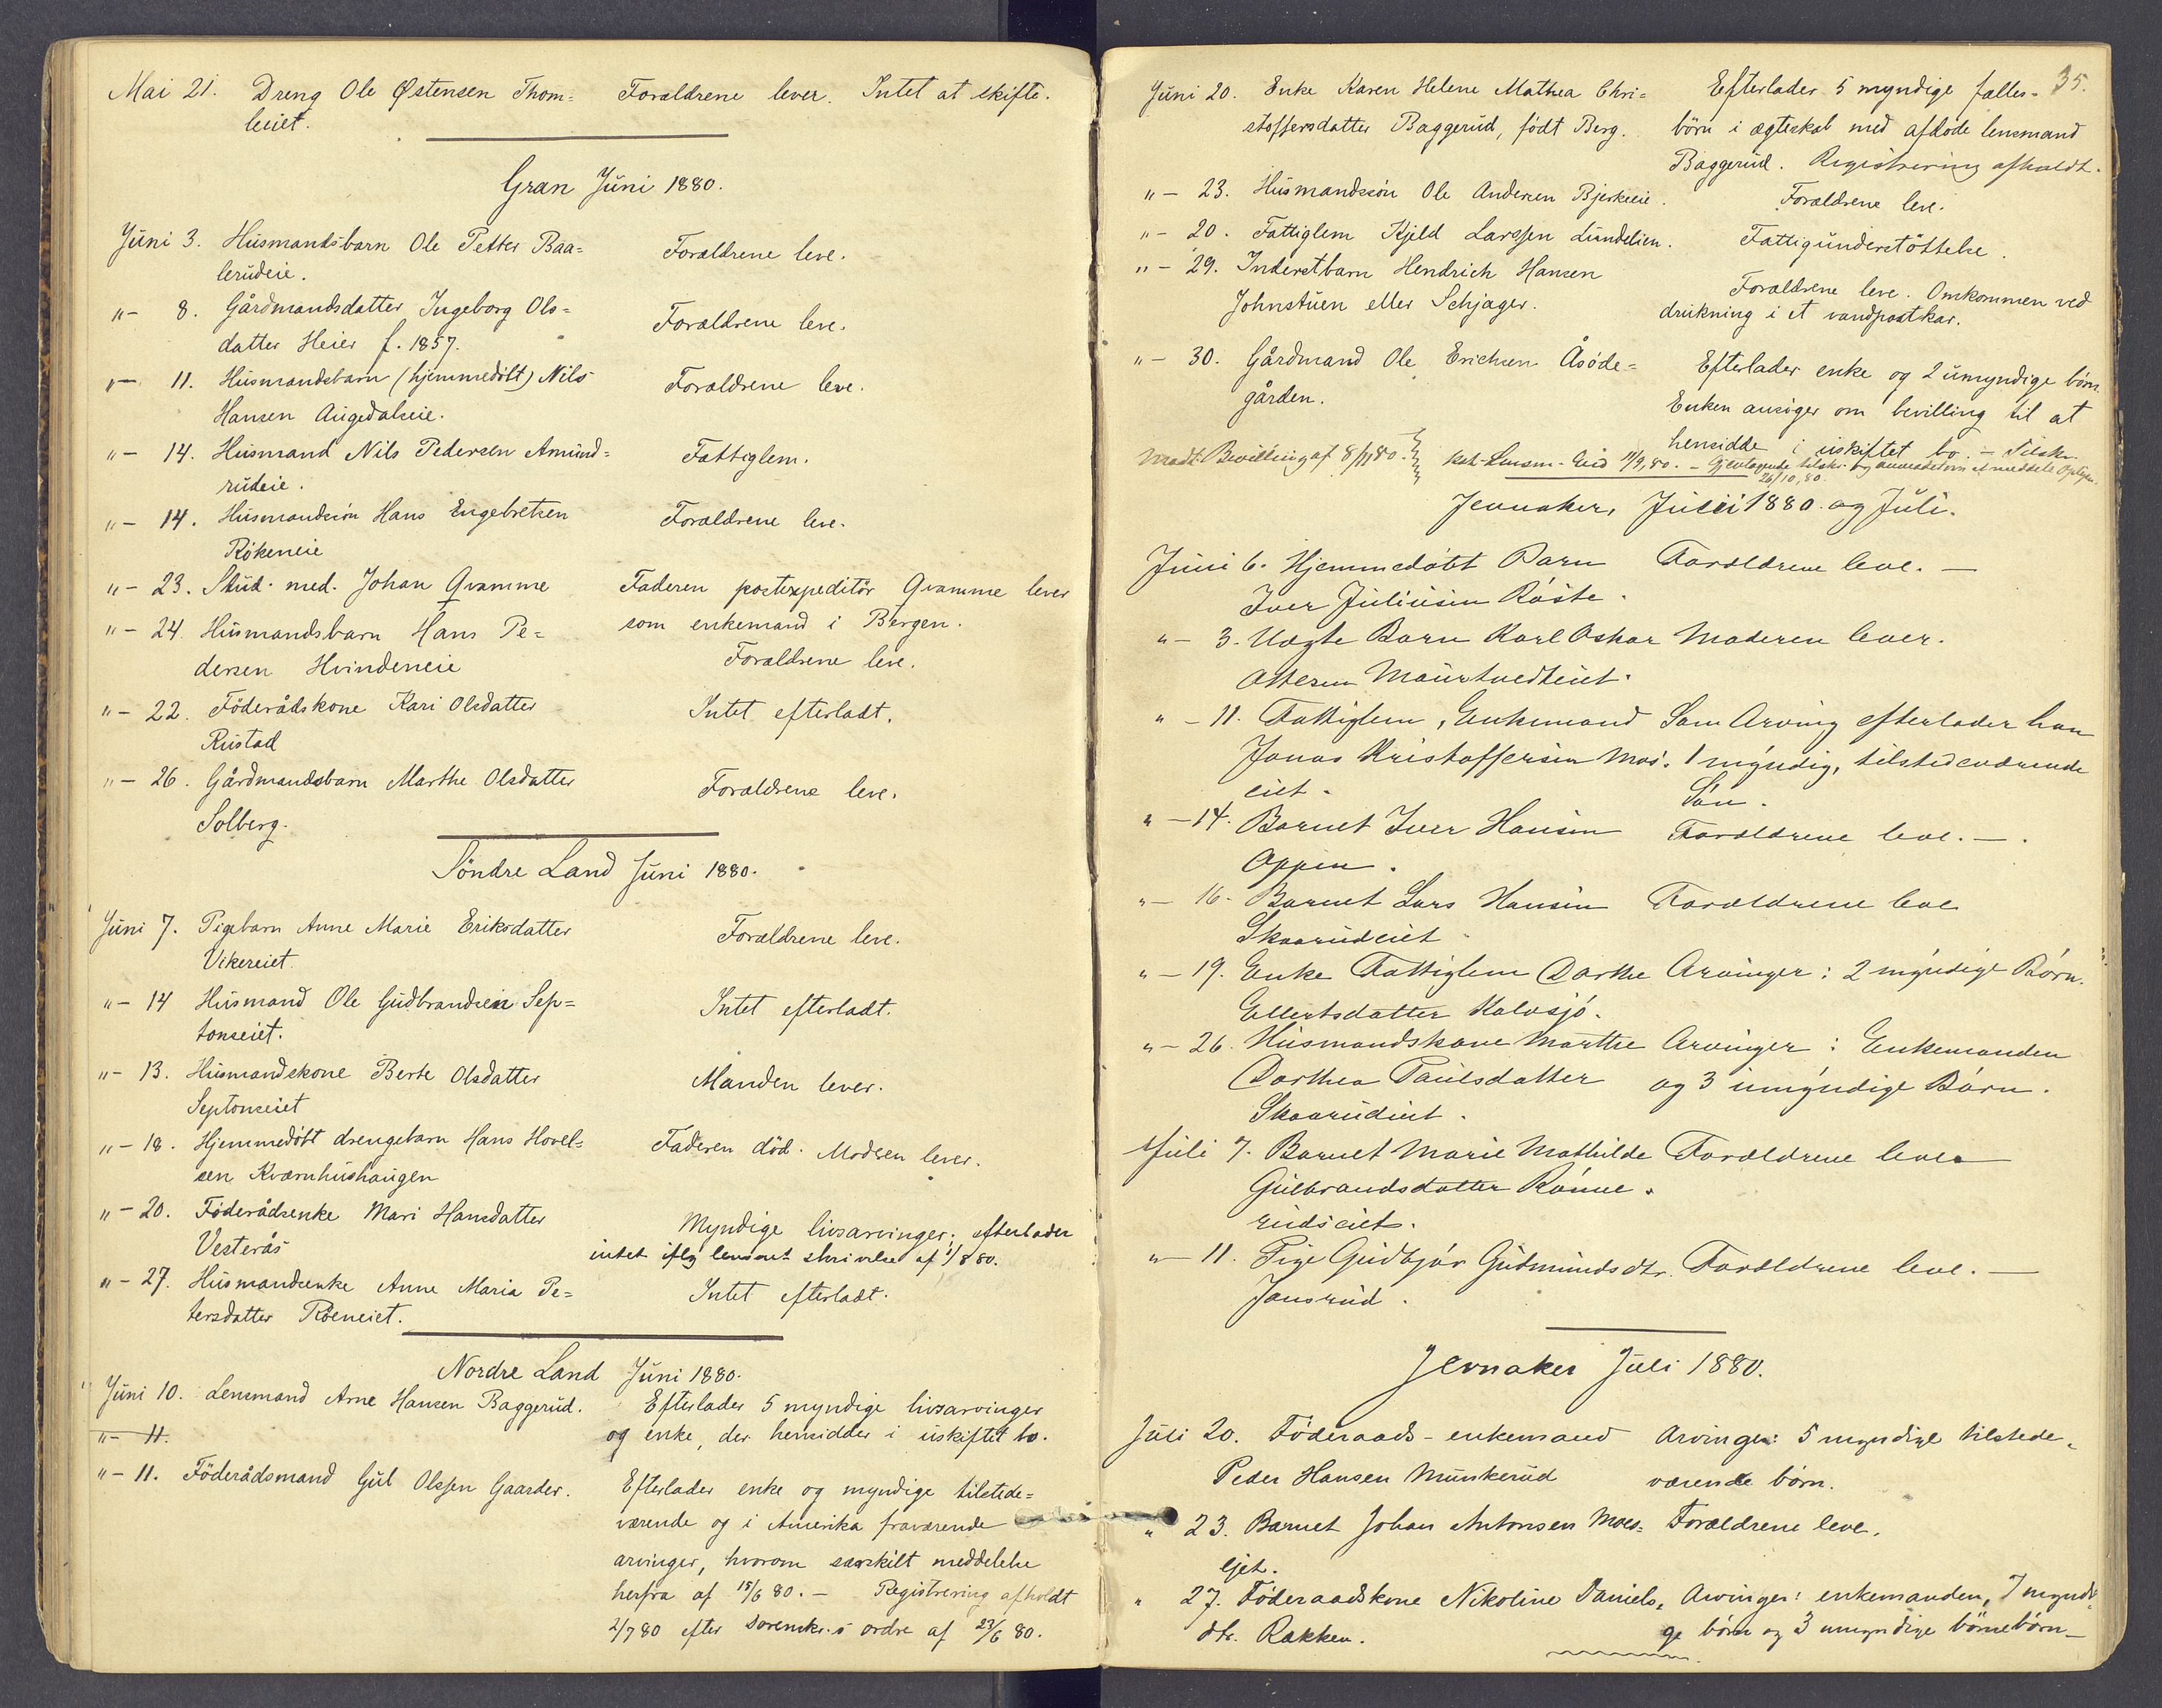 Mai 21. Dreng Ole Østensen Thom= Forældrene lever. Intet at skifte.
leiet.
Gran Juni 1880.
Juni 3. Husmandsbarn Ole Petter Baa= Forældrene leve.
lerudeie.
"- 8. Gårdmandsdatter Ingeborg Ols= Forældrene leve.
datter Heier f. 1857.
"- 11. Husmandsbarn (hjemmedöbt) Nils Forældrene leve.
Hansen Augedalseie.
"- 14. Husmand Nils Pedersen Amund= Fattiglem.
rudeie.
"- 14. Husmandssön Hans Engebretsen Forældrene leve.
Rökeneie
"- 23. Stud. med. Johan Qvamme Faderen postexpeditör Qvamme lever
som enkemand i Bergen.
"- 24. Husmandsbarn Hans Pe= Forældrene leve.
dersen Hvindeneie
"- 22. Föderådskone Kari Olsdatter Intet efterladt.
Rustad
"- 26. Gårdmandsbarn Marthe Olsdatter Forældrene leve.
Solberg.
Söndre Land Juni 1880.
Juni 7. Pigebarn Anne Marie Eriksdatter Forældrene leve.
Vikereiet.
"- 14 Husmand Ole Gudbrandsen Sep= Intet efterladt.
tonseiet.
"- 13. Husmandskone Berte Olsdatter Manden lever.
Septonseiet
"- 18. Hjemmedöbt drengebarn Hans Hovel= Faderen död. Moderen lever.
sen Kværnhushaugen
"- 20. Föderådsenke Mari Hansdatter Myndige livsarvinger; efterlader
Vesterås intet iflg lensmt skrivelse af 1/8 80.
"- 27. Husmandsenke Anne Maria Pe= Intet efterladt.
tersdatter Röeneiet.
Nordre Land Juni 1880.
Juni 10. Lensmand Arne Hansen Baggerud. Efterlader 5 myndige livsarvinger
"- 11. og enke, der hensidder i uskiftet bo.
"- 11. Föderådsmand Gul Olssen Gaarder. Efterlader enke og myndige tilstede=
værende og i Amerika fraværende
arvinger, hvorom særskilt meddelelse
herfra af 15/6 80. - Registrering afholdt
2/7 80 efter sorenskr.s ordre af 23/6 80.
35.
Juni 20. Enke Karen Helene Mathea Chri= Efterlader 5 myndige fælles-
stoffersdatter Baggerud, födt Berg. börn i ægteskab med afdöde lensmand
Baggerud. Registrering afholdt.
"- 23. Husmandssön Ole Andersen Bjerkeeie. Forældrene leve.
"- 20. Fattiglem Kjeld Larssen Lundelien. Fattigunderstöttelse.
"- 29. Inderstbarn Hendrich Hansen Forældrene leve. Omkommen ved
Johnstuen eller Schjager. drukning i et vandpostkar.
"- 30. Gårdmand Ole Erichsen Åsöde= Efterlader enke og 2 umyndige börn.
gården. Enken ansöger om bevilling til at
hensidde i uskiftet bo. - Tilskr.
Modt. Bevilling af 8/11 80. Lensm. Eid 11/9, 80. - Gjentagende tilskr.
26/10, 80.
Jevnaker, Juni 1880. og Juli.
Juni 6. Hjemmedöbt Barn Forældrene leve. —
Iver Juliusen Röste.
"- 3. Uægte Barn Karl Oskar Moderen lever.
Ottesen Maurtvedteiet.
"- 11. Fattiglem, Enkemand Som Arving efterlader han
Jonas Kristoffersen Mos= 1 myndig, tilstedeværende
eiet. Sön.
"- 14. Barnet Iver Hansen Forældrene leve. —
Oppen.
"- 16. Barnet Lars Hansen Forældrene leve
Skaarudeiet
"- 19. Enke Fattiglem Dorthe Arvinger: 2 myndige Börn.
Ellertsdatter Kalvsjö.
"- 26. Husmandskone Marthe Arvinger: Enkemanden
Dorthea Paulsdatter og 3 umyndige Börn.
Skaarudeiet.
Juli 7. Barnet Marie Mathilde Forældrene leve.
Gulbrandsdatter Rönne=
rudseiet.
"- 11. Pige Gudbjör Gudmundsdtr. Forældrene leve. —
Jonsrud.
Jevnaker Juli 1880.
Juli 20. Föderaads-enkemand Arvinger: 5 myndige tilstede=
Peder Hansen Munkerud værende börn.
" 23. Barnet Johan Antonsen Moes= Forældrene leve.
ejet.
" 27. Föderaadskone Nikoline Daniels= Arvinger: enkemanden, 7 myndi=
dtr. Rækken. ge börn og 3 umyndige börnebörn—